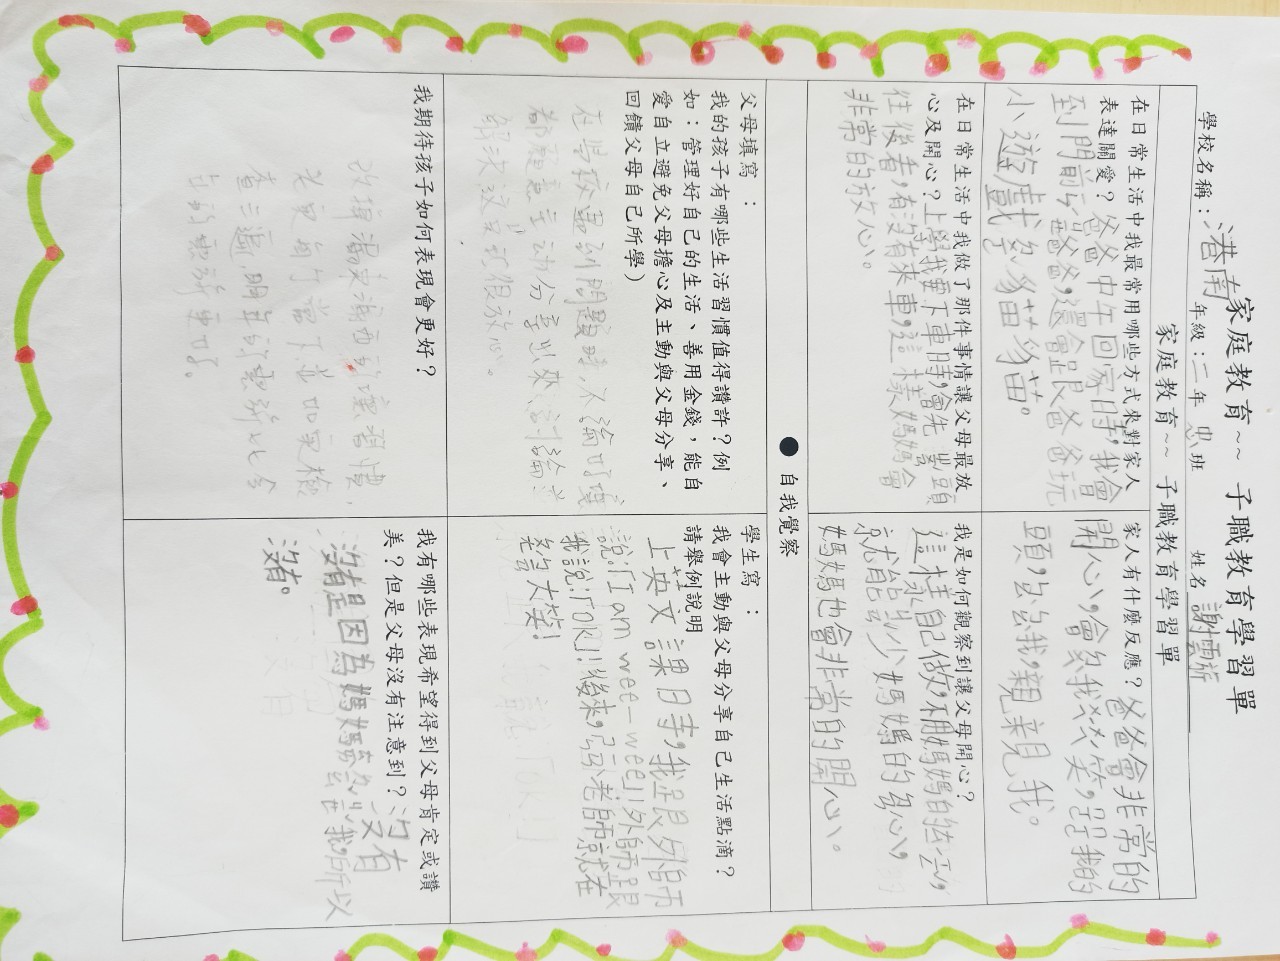 家庭教育~~ 子職教育學習單
學校名稱：港南 年級：二年 忠班 姓名 謝雲
家庭教育~~ 子職教育學習單
在日常生活中我最常用哪些方式來對家人
表達關愛？爸爸中午回家時，我會
到門前爸爸，還會跟爸爸玩
小遊戲
家人有什麼反應？爸爸會非常的
開心，會對我笑，我的
頭，親親我。
在日常生活中我做了那件事情讓父母最放
心及開心？上學我要下車時，會先
往後看，有沒有來車，這樣媽媽會
非常的放心。
我是如何觀察到讓父母開心？
這樣自己做，不用媽媽的
就能減少媽媽的心，
媽媽也會非常的開心。
● 自我覺察
父母填寫：
我的孩子有哪些生活習慣值得讚許？例
如：管理好自己的生活、善用金錢，能自
愛自立避免父母擔心及主動與父母分享、
回饋父母自己所學）
在學校遇到問題時，不論好壞
都願意主動分享出來討論並
解決這點我很放心。
學生寫：
我會主動與父母分享自己生活點滴？
請舉例說明
上英文課時，我跟外師
說:「I am wee-wee」外師跟
我說:「OK」!後來，老師就在
大笑!
我期待孩子如何表現會更好？
改掉
老是
查三遍
我有哪些表現希望得到父母肯定或讚
美？但是父母沒有注意到？沒有
沒有是因為媽媽我，所以
沒有。